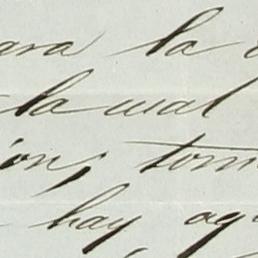 ara la
la cual
ion, tom
hay ag